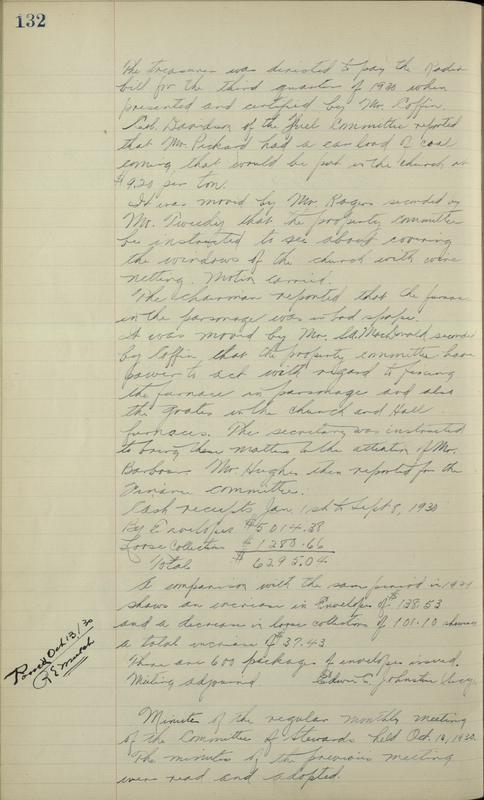 132
The treasurer was directed to pay the Radio
bill for the third quarter of 1930 when
presented and certified by Mr. Coffin.
Davidson of the Fuel Committee reported
that Mr. Pickard had a car load of coal
coming that would be put in the church at
$9.20 per ton.
It was moved by Mr. Rogers seconded by
Mr. Tweedy that the property committee
be instructed to see about covering
the windows of the church with wire
netting. Motion carried.
The chairman reported that the furnace
in the parsonage was in bad shape.
It was moved by Mr. MacDonald seconded
by Coffin that the property committee have
power to act with regard to fixing
the furnace in parsonage and also
the grates in the church and Hall
furnaces. The secretary was instructed
to bring these matters to the attention of Mr.
Barbour. Mr Hughes then reported for the
Finance committee.
Cash receipts Jan 1st to Sept 8, 1930
By Envelopes $5014.38
Loose Collection $1280.66
Total $6295.04
A comparison with the same period in 1929
shows an increase in Envelopes of $138.53
and a decrease in loose collection of 101.10 showing
a total increase of $37.43
There are 600 packages of envelopes issued.
Meeting adjourned Edwin C. Johnston Secy.
Passed Oct 13/30
Minutes of the regular monthly meeting
of the Committee of Stewards held Oct. 13, 1930.
The minutes of the previous meeting
were read and adopted.